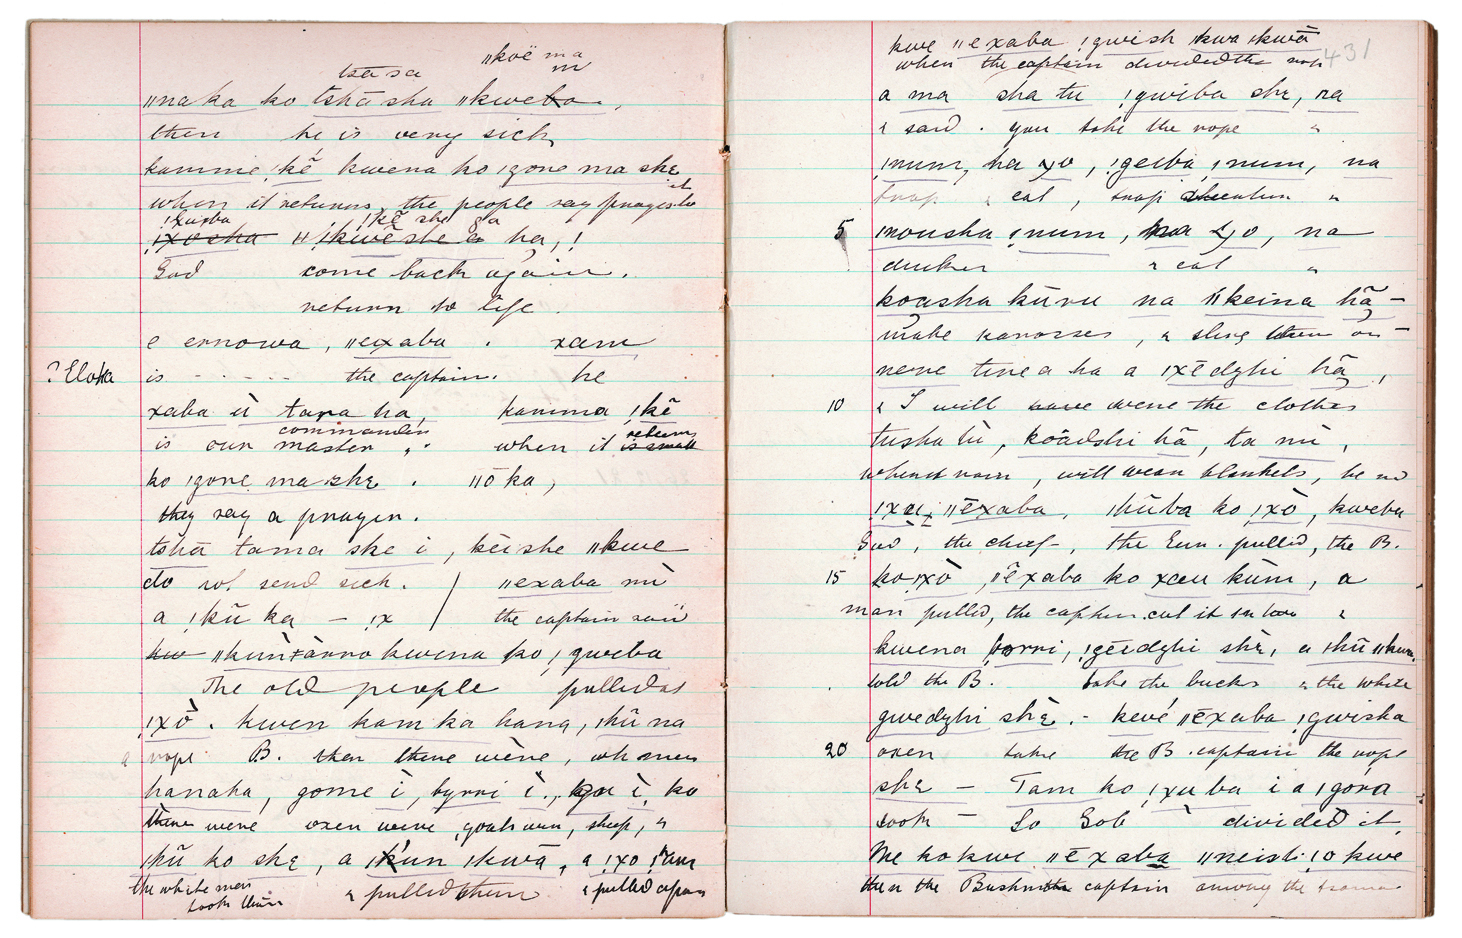 ǁkoë ma
m
tsā sa
ǁna ka ko tshā sha ǁkweba.,
then he is very sick,
kamme ǃkẽ kwena ko ǀgone ma she
when it returns, the people say prayers to
it
ǀxuba ǀkẽ she g a
ǀxosha ǁ ǀkwēshe a ha, !
God come back again.
return to life.
e ernowa, ǁexaba . xam
? Eloka is - - - - - the captain. he
xaba ù tara ha, kamma ǃkẽ
commander return
is our master, when it is small
ko ǀgone ma she . ǁō ka,
they say a prayer.
tshā tama she i, kēishe ǁkwe
do not send sick. / ǁexaba mì
a ǃkū ka – ǀx / the captain said
kw ǁkunfànna kwena ko ǀgweba
The old people pulled at
ǀxò. kwen kam ka hana, ǀhũ na
a rope B. then there were, wh men
hanaha, gome ì, byrri ì., gu ì, ko
there were oxen were, goats were, sheep, &
ǀhũ ko she, a ǀkun ǀkwā, a ǀxo ǀam
the white men & pulled them & pulled apart
took them
431
kwe ǁexaba ǃgwish ǀkwa ǀkwā
when the captain divided the rope
a ma sha tu ǃgwiba she, na
& said . you take the rope &
ǀnum, ha ǂo, ǃgeiba ǀnum, na
trap & eat, trap steenbu &
5 ǀnousha ǀnum, ha ǂo, na
duiker & eat &
koasha kūru na ǁkeina hã –
make karosses, & sling them on –
nene tinea ha a ǀxēdzhi hã,
10 & I will wene the clothes
tusha tù, kōadshi hã, ta mì,
when it rain, will wear blankets, he sd
ǀxu, ǁēxaba, ǀhũba ko ǀxò, kweba
God, the chief, the Eur. pulled, the B.
15 ko ǀxò, ǁēxaba ko xau kūm, a
man pulled, the captain cut it in two &
kwena borri, ǃgēēdzhi shē, a ǀhũ ǁkwn
told the B. take the bucks & the white
gwedzhi shē. - kevé ǁēxaba ǃgwisha
20 oxen take the B. captain the rope
she – Tam ko ǀxu ba i a ǀgóra
took – So God divided it
Me ko kwe ǁēxaba ǁneisti ǀo kwe
then the Bushm captain among the